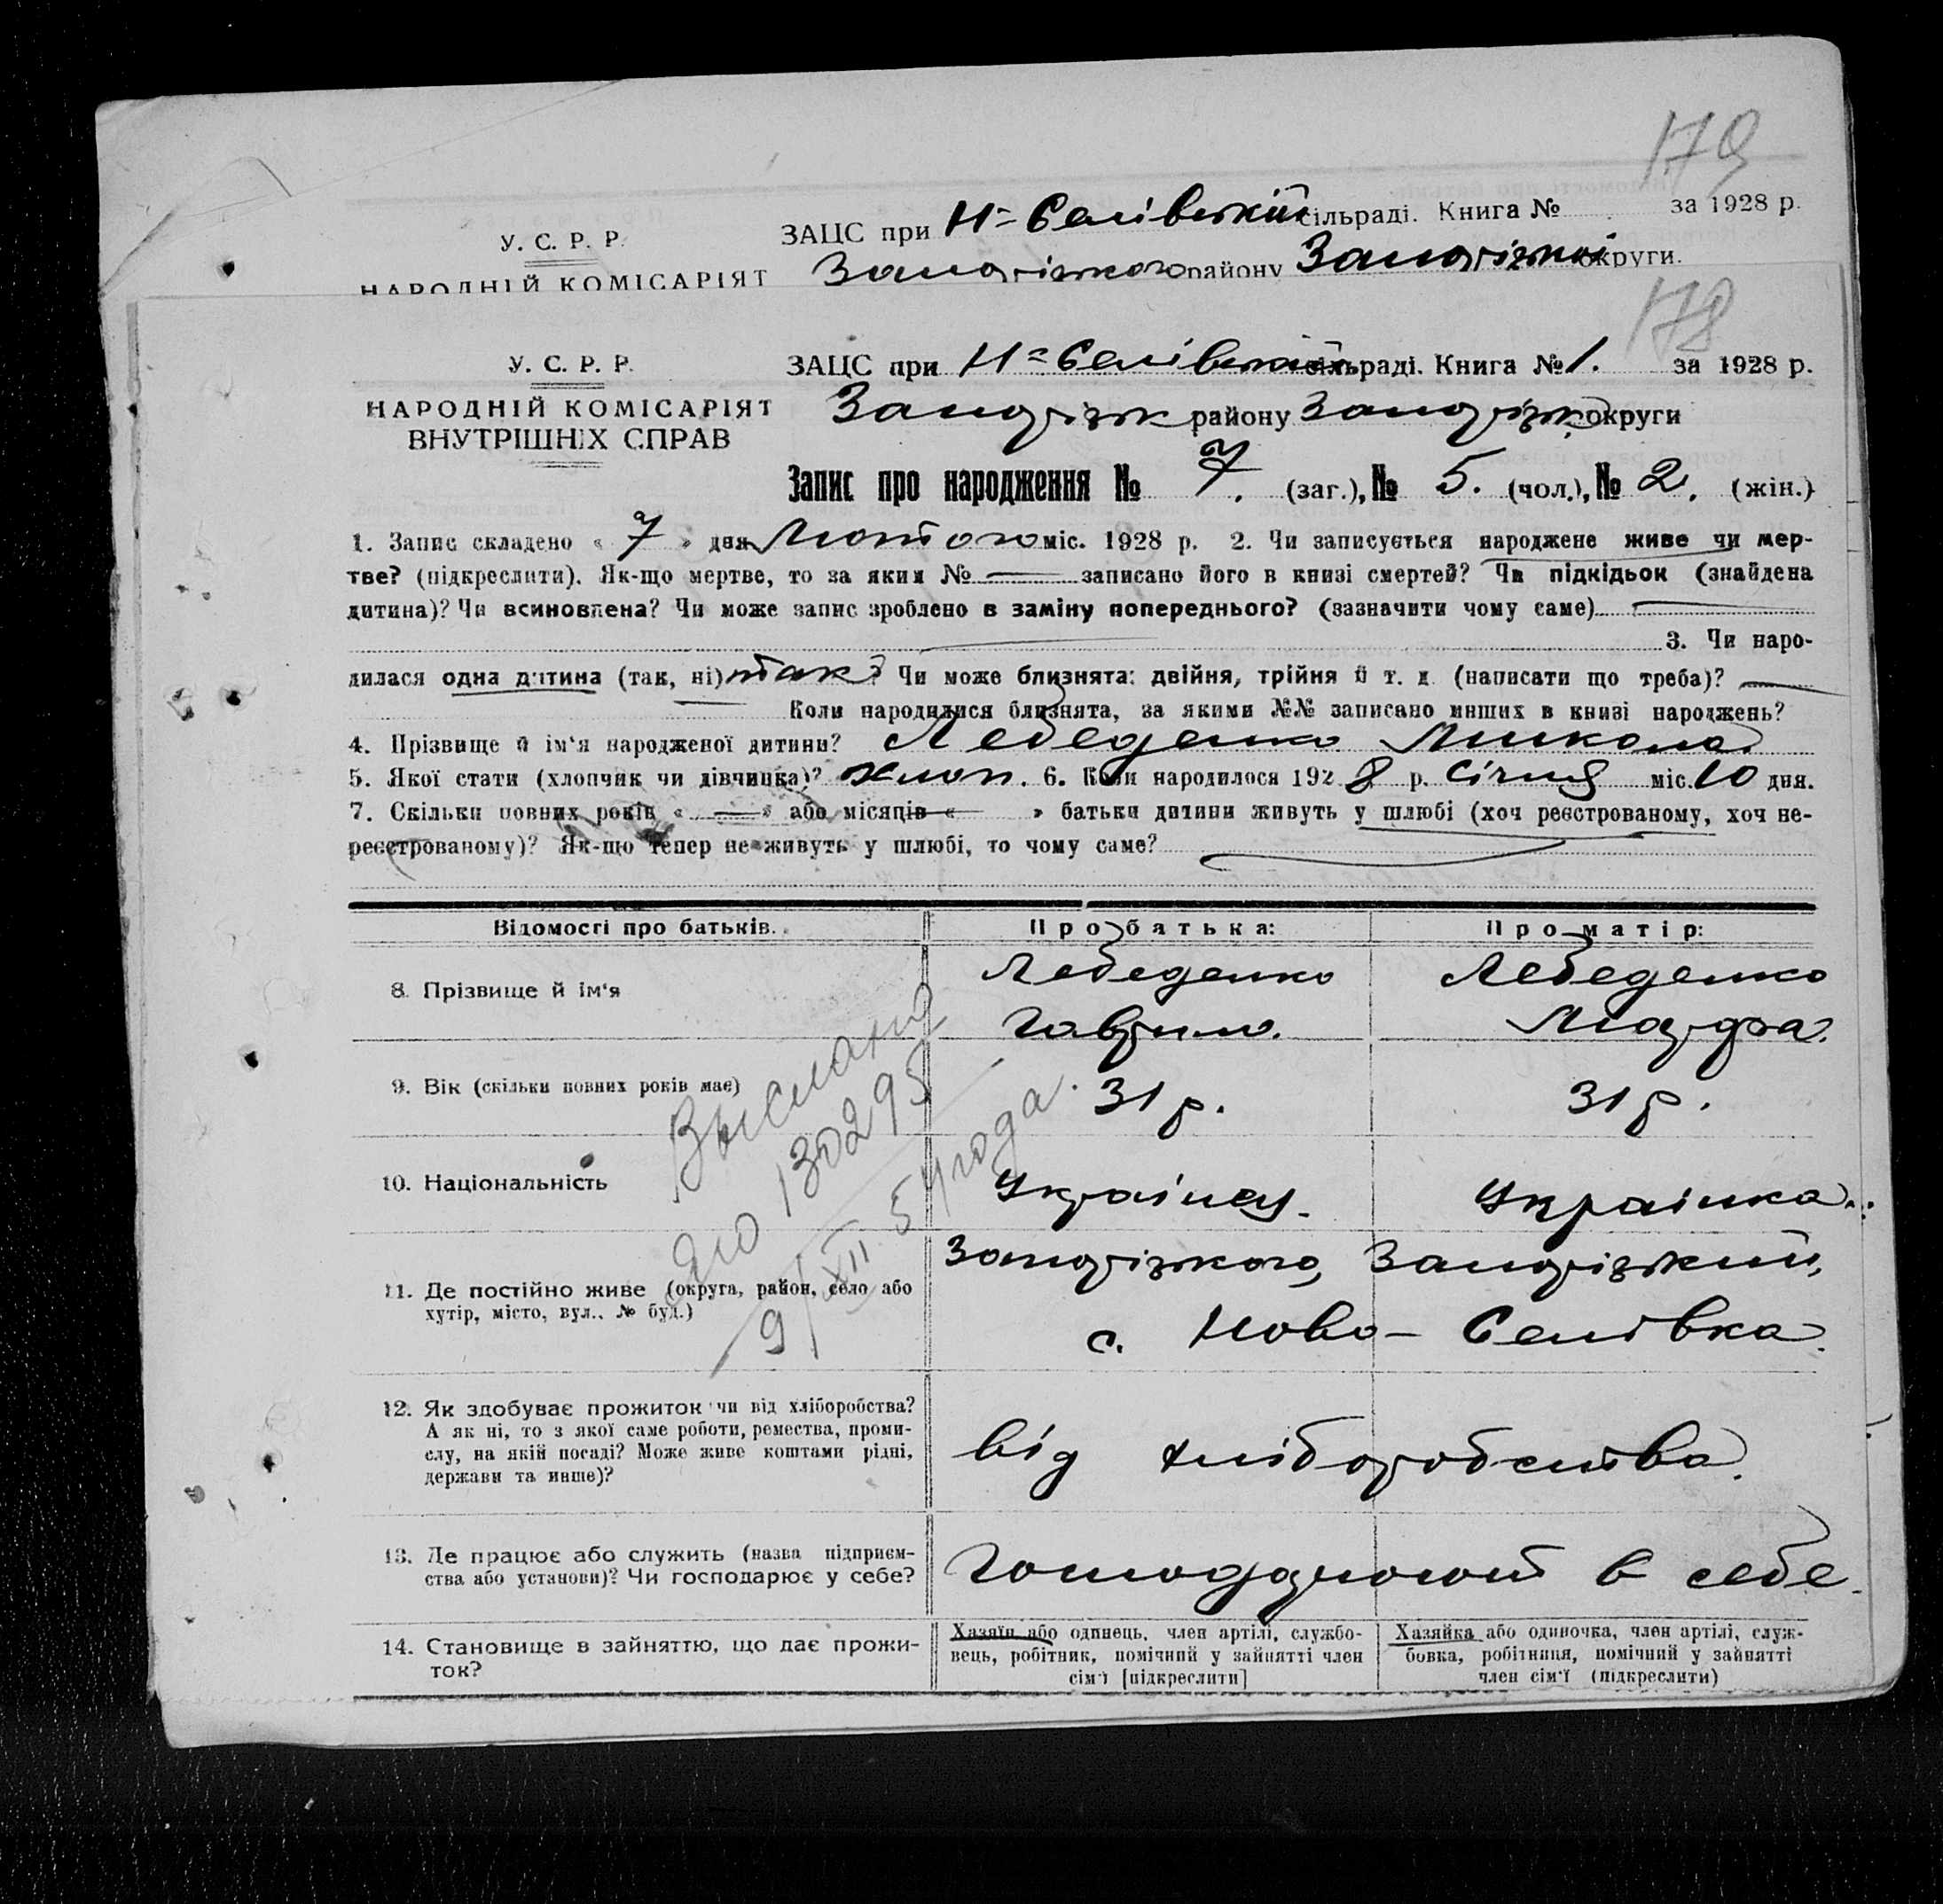 179
У. С. Р. Р.
ЗАЦС при Н-Селівській сільраді. Книга № за 1928 р.
НАРОДНІЙ КОМІСАРІЯТ
Запорізького району Запорізької округи.
178
У. С. Р. Р.
ЗАЦС при Н=Селівській сільраді. Книга № 1. за 1928 р.
НАРОДНІЙ КОМІСАРІЯТ
ВНУТРІШНІХ СПРАВ
Запорізьк району Запорізьк округи
Запис про народження № 7. (заг.), № 5. (чол.), № 2. (жін.)
1. Запис складено « 7 » дня Лютого міс. 1928 р. 2. Чи записується народжене живе чи мер-
тве? (підкреслити). Як-що мертве, то за яким № — записано його в книзі смертей? Чи підкідьок (знайдена
дитина)? Чи всиновлена? Чи може запис зроблено в заміну попереднього? (зазначити чому саме) —
3. Чи наро-
дилася одна дитина (так, ні) так? Чи може близнята: двійня, трійня й т. д. (написати що треба)? —
Коли народилися близнята, за якими №№ записано инших в книзі народжень?
4. Прізвище й ім'я народженої дитини? Лебеденко Микола.
5. Якої стати (хлопчик чи дівчинка)? хлоп. 6. Коли народилося 1928 р. Січня міс. 10 дня.
7. Скільки повних років « — » або місяців « — » батьки дитини живуть у шлюбі (хоч реєстрованому, хоч не-
реєстрованому)? Як-що тепер не живуть у шлюбі, то чому саме?
Відомості про батьків.
Про батька:
Про матір:
8. Прізвище й ім'я
Лебеденко
Гаврило.
Лебеденко
Марфа.
9. Вік (скільки повних років має)
31 р.
31 р.
10. Національність
Українец.
Українка.
11. Де постійно живе (округа, район, село або
хутір, місто, вул., № буд.)
Запорізького, Запорізький,
с. Ново-Селівка.
12. Як здобуває прожиток чи від хліборобства?
А як ні, то з якої саме роботи, ремества, проми-
слу, на якій посаді? Може живе коштами рідні,
держави та инше)?
від хліборобства.
13. Де працює або служить (назва підприєм-
ства або установи)? Чи господарює у себе?
Господарюють в себе.
14. Становище в зайняттю, що дає прожи-
ток?
Хазяїн або одинець, член артілі, службо-
вець, робітник, помічний у зайнятті член
сім'ї [підкреслити]
Хазяйка або одиночка, член артілі, служ-
бовка, робітниця, помічний у зайнятті
член сім'ї (підкреслити)
Выслано
130295
9/XII 54 года.